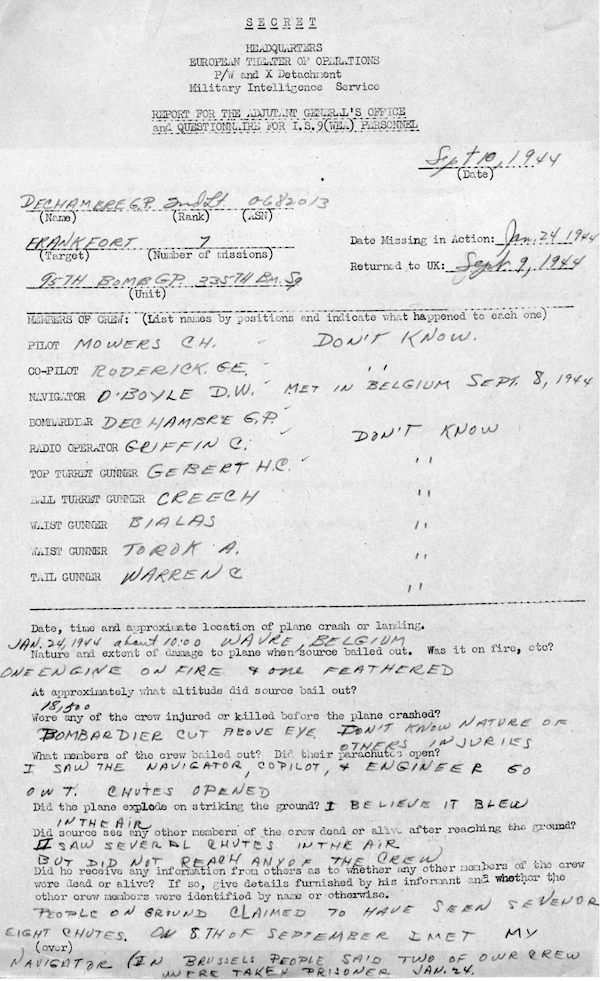 SECRET
HEADQUARTERS
EUROPEAN THEATER OF OPERATIONS
P/W and X Detachment
Military Intelligence Service
REPORT FOR THE ADJUTANT GENERAL'S OFFICE
and QUESTIONNAIRE FOR I.S.9(WEA) PERSONNEL
Sept 10, 1944
(Date)
DECHAMBRE G.P. 2nd Lt. 0682013
(Name) (Rank) (ASN)
FRANKFORT 7 Date Missing in Action: Jan. 24 1944
(Target) (Number of missions)
Returned to UK: Sept. 9, 1944
95TH BOMB GP. 335TH Bm. Sq
(Unit)
MEMBERS OF CREW: (List names by positions and indicate what happened to each one)
PILOT MOWERS C.H. DON'T KNOW.
CO-PILOT RODERICK. G.E. ''
NAVIGATOR O'BOYLE D.W. MET IN BELGIUM SEPT. 8, 1944
BOMBARDIER DECHAMBRE G.P.
RADIO OPERATOR GRIFFIN C. DON'T KNOW
TOP TURRET GUNNER GEBERT H.C. ''
BALL TURRET GUNNER CREECH ''
WAIST GUNNER BIALAS ''
WAIST GUNNER TOROK A. ''
TAIL GUNNER WARREN C ''
Date, time and approximate location of plane crash or landing.
JAN. 24, 1944 about 10:00 WAVRE, BELGIUM
Nature and extent of damage to plane when source bailed out. Was it on fire, etc?
ONE ENGINE ON FIRE & one FEATHERED
At approximately what altitude did source bail out?
18,500
Were any of the crew injured or killed before the plane crashed?
BOMBARDIER CUT ABOVE EYE DON'T KNOW NATURE OF
OTHERS INJURIES
What members of the crew bailed out? Did their parachutes open?
I SAW THE NAVIGATOR, COPILOT, & ENGINEER GO
OUT. CHUTES OPENED
Did the plane explode on striking the ground? I BELIEVE IT BLEW
IN THE AIR
Did source see any other members of the crew dead or alive after reaching the ground?
I SAW SEVERAL CHUTES IN THE AIR
BUT DID NOT REACH ANY OF THE CREW
Did he receive any information from others as to whether any other members of the crew
were dead or alive? If so, give details furnished by his informant and whether the
other crew members were identified by name or otherwise.
PEOPLE ON GROUND CLAIMED TO HAVE SEEN SEVEN OR
EIGHT CHUTES. ON 8TH OF SEPTEMBER I MET MY
(over)
NAVIGATOR (IN BRUSSELS PEOPLE SAID TWO OF OUR CREW
WERE TAKEN PRISONER JAN. 24.